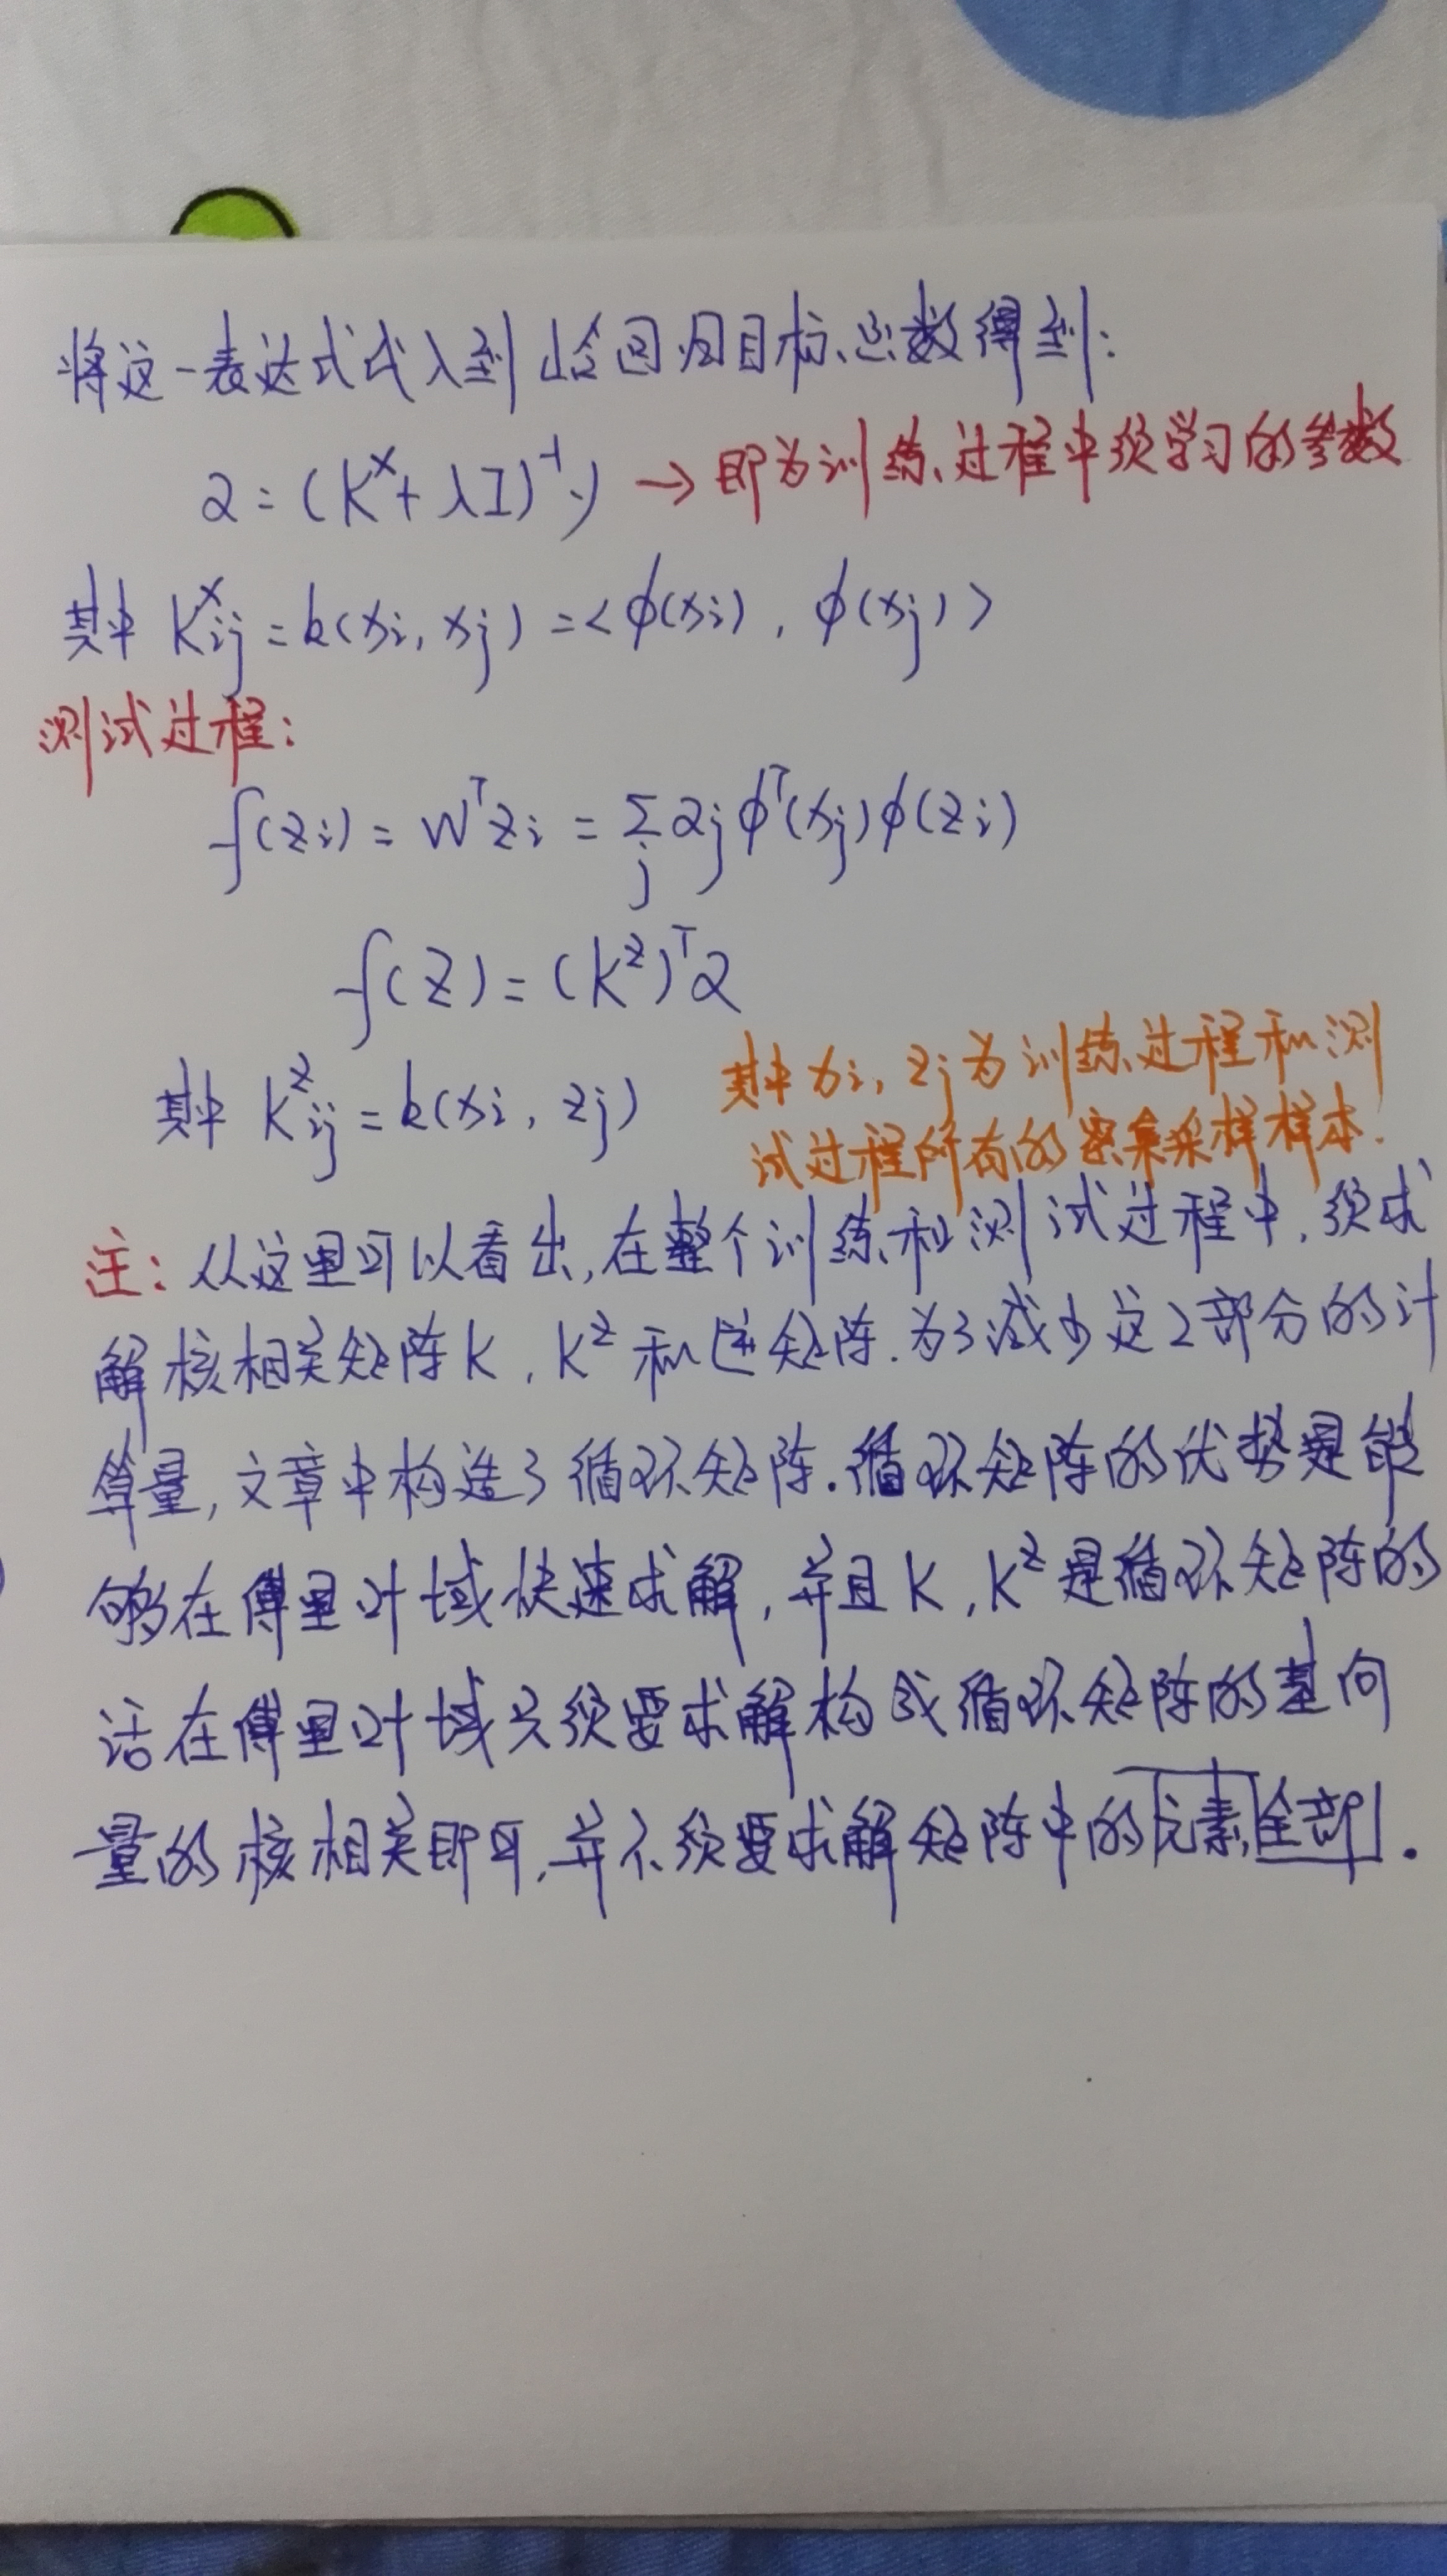 将这一表达式代入到岭回归目标函数得到:
α = (K^x + λI)^{-1} y → 即为训练过程中须学习的参数
其中 K^x_{ij} = k(x_i, x_j) = <φ(x_i), φ(x_j)>
测试过程:
f(z_i) = W^T z_i = Σ_j α_j φ^T(x_j) φ(z_i)
f(z) = (K^z)^T α
其中 K^z_{ij} = k(x_i, z_j)
其中 x_i, z_j 为训练过程和测
试过程所有的密集采样样本.
注: 从这里可以看出, 在整个训练和测试过程中, 须求
解核相关矩阵K, K^z 和逆矩阵. 为了减少这2部分的计
算量, 文章中构造了循环矩阵. 循环矩阵的优势是能
够在傅里叶域快速求解, 并且K, K^z是循环矩阵的
话在傅里叶域只须要求解构成循环矩阵的基向
量的核相关即可, 并不须要求解矩阵中的元素全部.